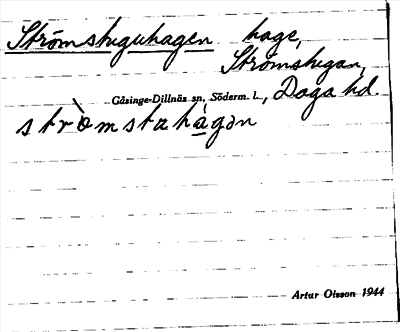 Strömstuguhagen hage,
Strömstugan,
Gåsinge-Dillnäs sn, Söderm. l., Daga hd.
strö̀mstahágən
Artur Olsson 1944